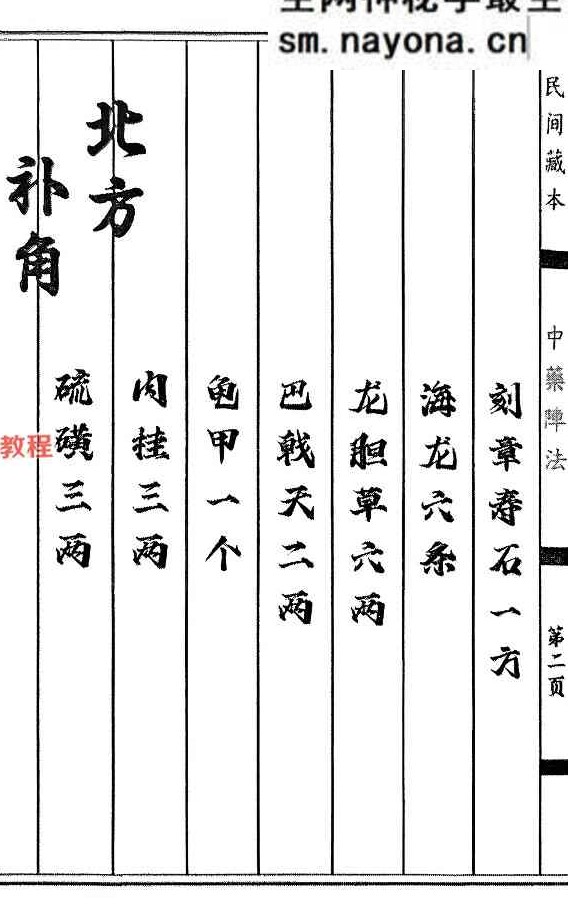 sm.nayona.cn
民间藏本
中药阵法
第二页
刻章寿石一方
海龙六条
龙胆草六两
巴戟天二两
龟甲一个
肉桂三两
硫磺三两
北方
补角
教程